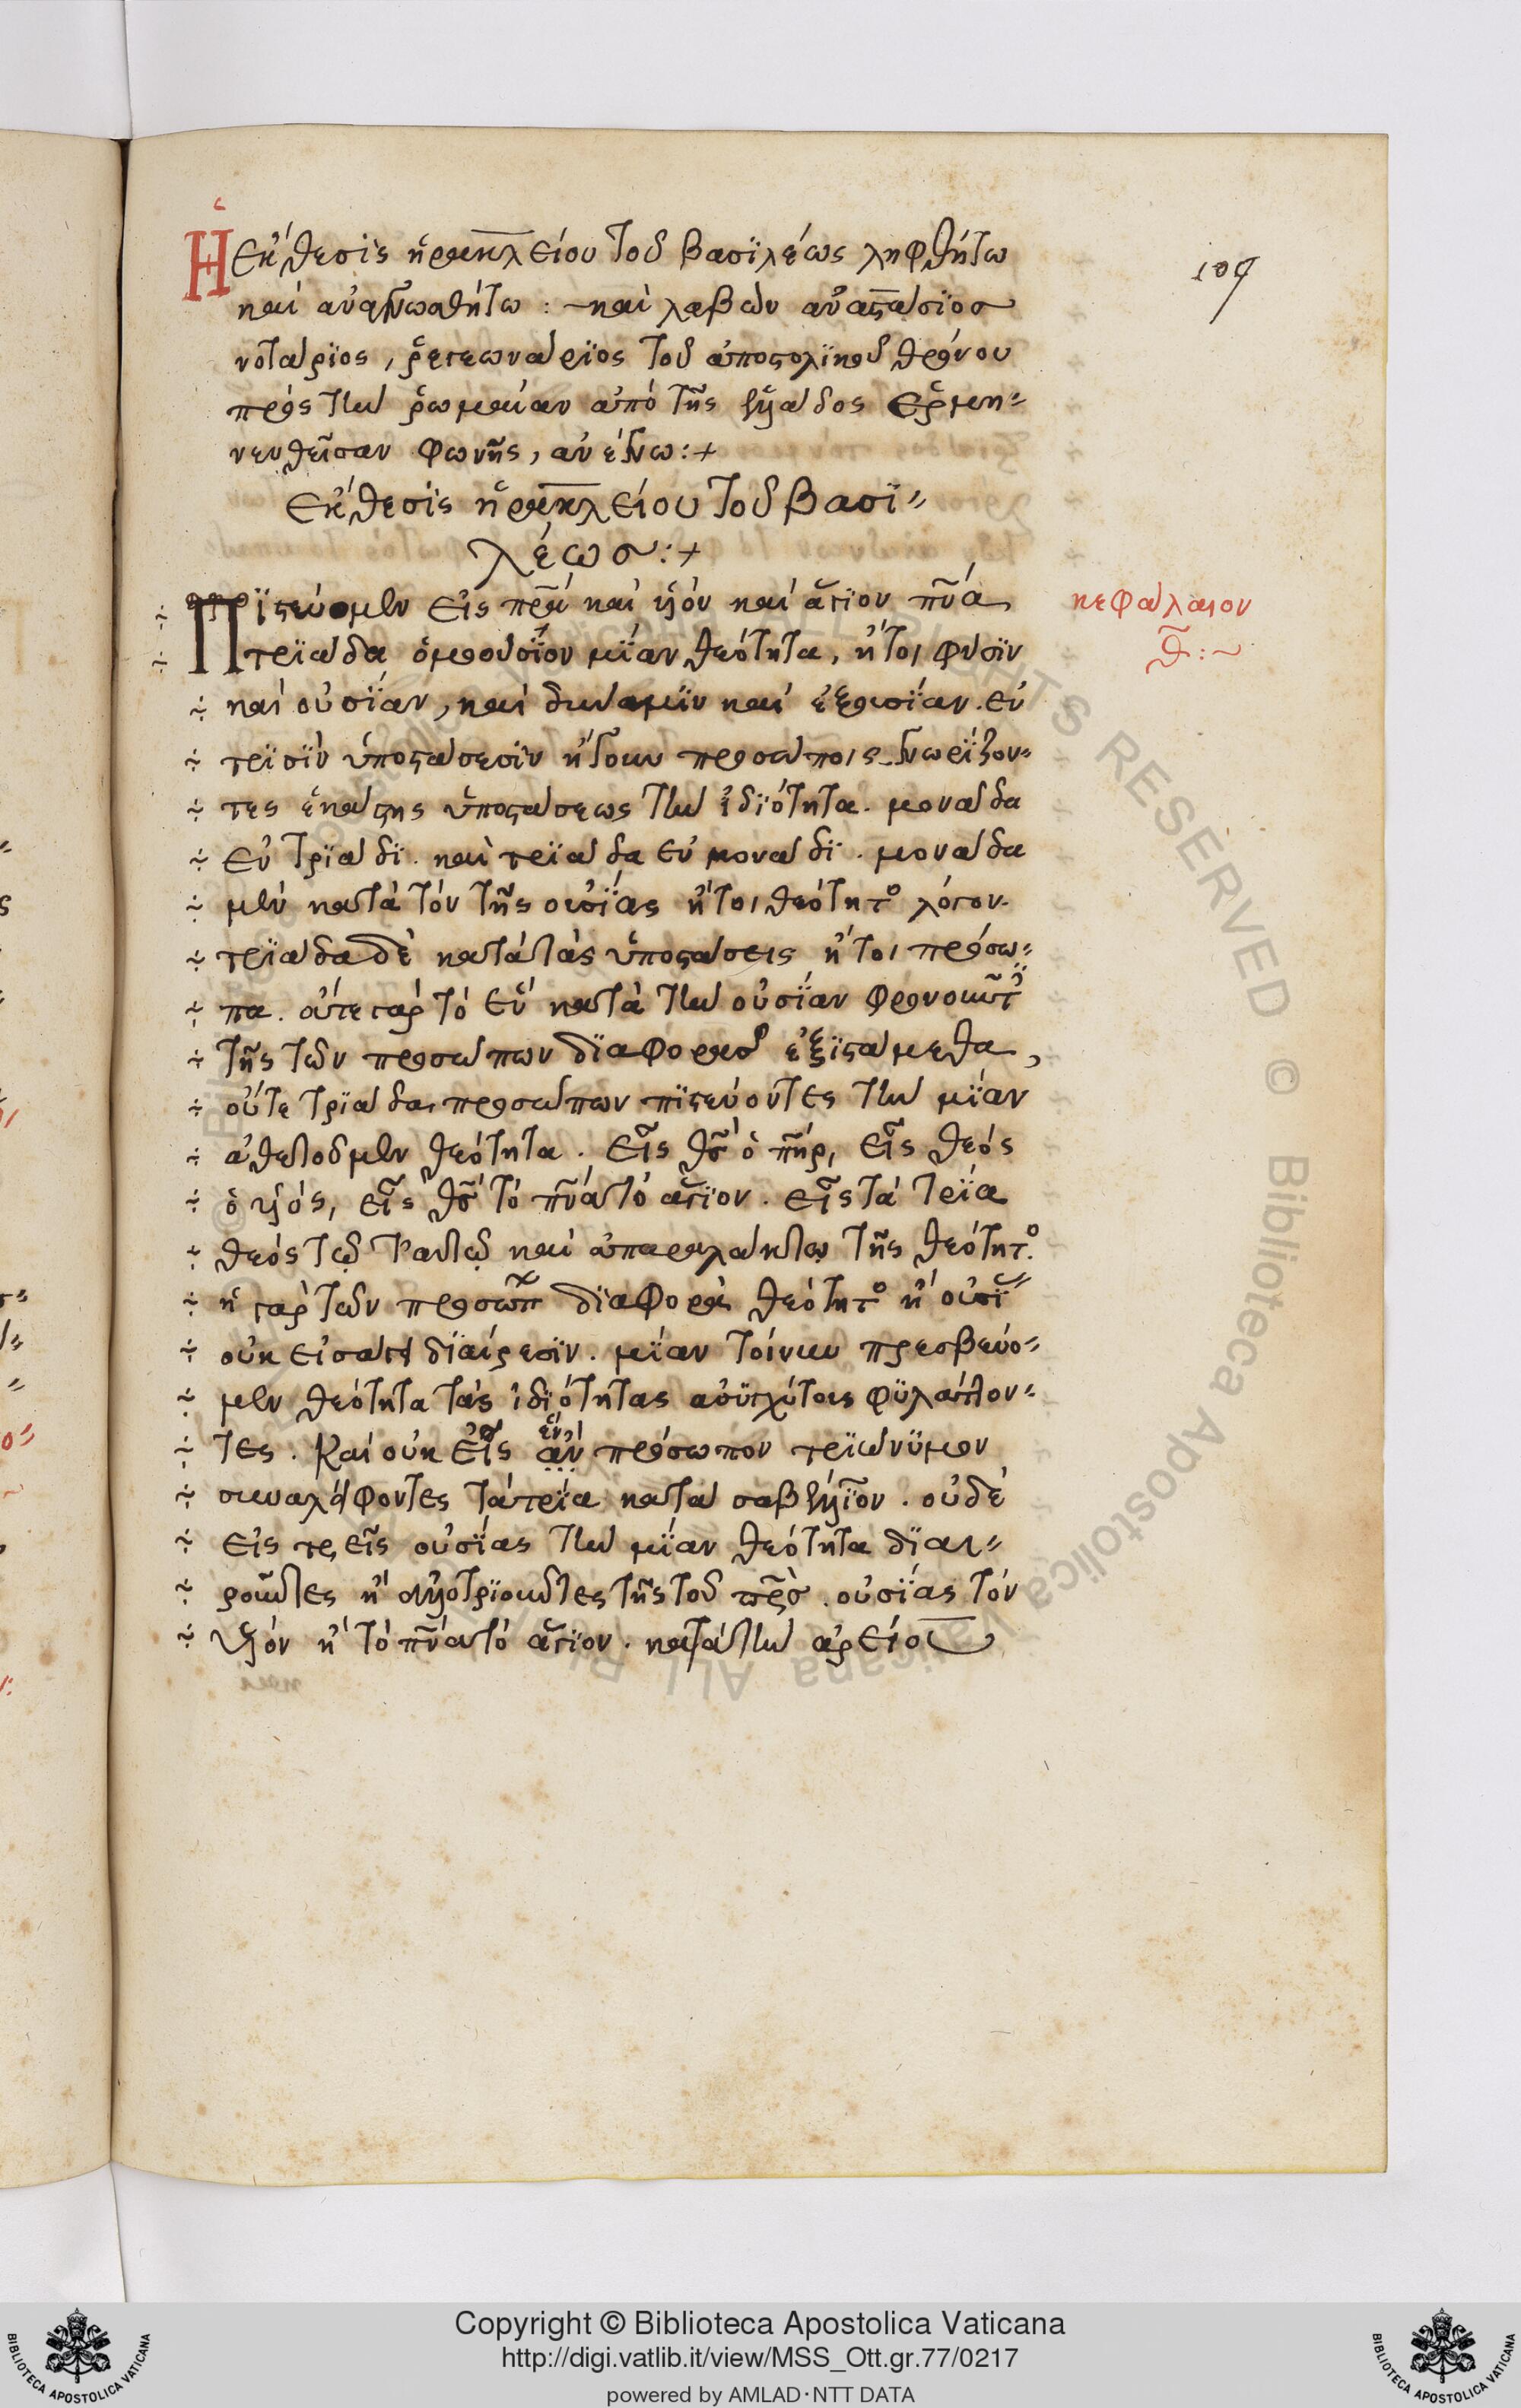 Ἡ ἔκθεσις ἡρακλείου τοῦ βασϊλέως ληφθήτω
καὶ ἀναγνωσθήτω :~ καὶ λαβὼν ἀναστάσϊος
νοτάρϊος, ῥεγεωνάρϊος τοῦ ἀποστολϊκοῦ θρόνου
πρὸς τὴν ῥωμαίαν ἀπὸ τῆς ἑλλάδος ἑρμη-
νευθεῖσαν φωνῆς, ἀνέγνω :+
ἔκθεσϊς ἡρακλείου τοῦ βασϊ-
λέως :+
Πϊστεύομεν εἰς πρα καὶ υἱὸν καὶ ἅγϊον πνα
κεφάλαιον
θ :~
τρϊάδα ὁμοούσϊον μΐαν θεότητα, ἤτοι φύσϊν
καὶ οὐσΐαν, καὶ δύναμϊν καὶ ἐξουσΐαν. ἐν
τρϊσῒν ὑποστάσεσϊν ἤγουν προσώποις γνωρΐζον-
τες ἑκάστης ὑποστάσεως τὴν ἰδϊότητα. μονάδα
ἐν τρϊάδϊ. καὶ τρϊάδα ἐν μονάδϊ. μονάδα
μὲν κατὰ τὸν τῆς οὐσΐας ἤτοι θεότητο λόγον.
τρϊάδα δὲ κατὰ τὰς ὑποστάσεις ἤτοι πρόσω-
πα. οὔτε γὰρ τὸ ἓν κατὰ τὴν οὐσΐαν φρονοῦντ
τῆς τῶν προσώπων δϊαφορᾶς ἐξϊστάμεθα,
οὔτε τρϊάδα προσώπων πϊστεύοντες τὴν μΐαν
ἀθετοῦμεν θεότητα. εἷς θς ὁ πηρ, εἷς θεὸς
ὁ υἱός, εἷς θς τὸ πνα τὸ ἅγϊον. εἷς τὰ τρΐα
θεὸς τῷ ταυτῷ καὶ ἀπαραλάκτῳ τῆς θεότητο.
ἡ γὰρ τῶν προσώπ δϊαφορὰ θεότητο ἢ οὐσΐ
οὐκ εἰσάγει δϊαίρεσϊν. μΐαν τοίνυν πρεσβεύο-
μεν θεότητα τὰς ἰδϊότητας ἀσϋγχύτοις φϋλάττον-
τες. Καὶ οὐκ εἰς ἂν ἓν πρόσωπον τρϊώνϋμον
συναλείφοντες τὰ τρΐα κατὰ σαβέλλϊον. οὐδὲ
εἰς τρεῖς οὐσΐας τὴν μΐαν θεότητα δϊαι-
ροῦντες ἢ ἀλλοτρϊοῦντες τῆς τοῦ πρς. οὐσΐας τὸν
υἱὸν ἢ τὸ πνα τὸ ἅγϊον. κατὰ τὴν ἀρείου
Copyright © Biblioteca Apostolica Vaticana
http://digi.vatlib.it/view/MSS_Ott.gr.77/0217
powered by AMLAD·NTT DATA
BIBLIOTECA APOSTOLICA VATICANA
BIBLIOTECA APOSTOLICA VATICANA